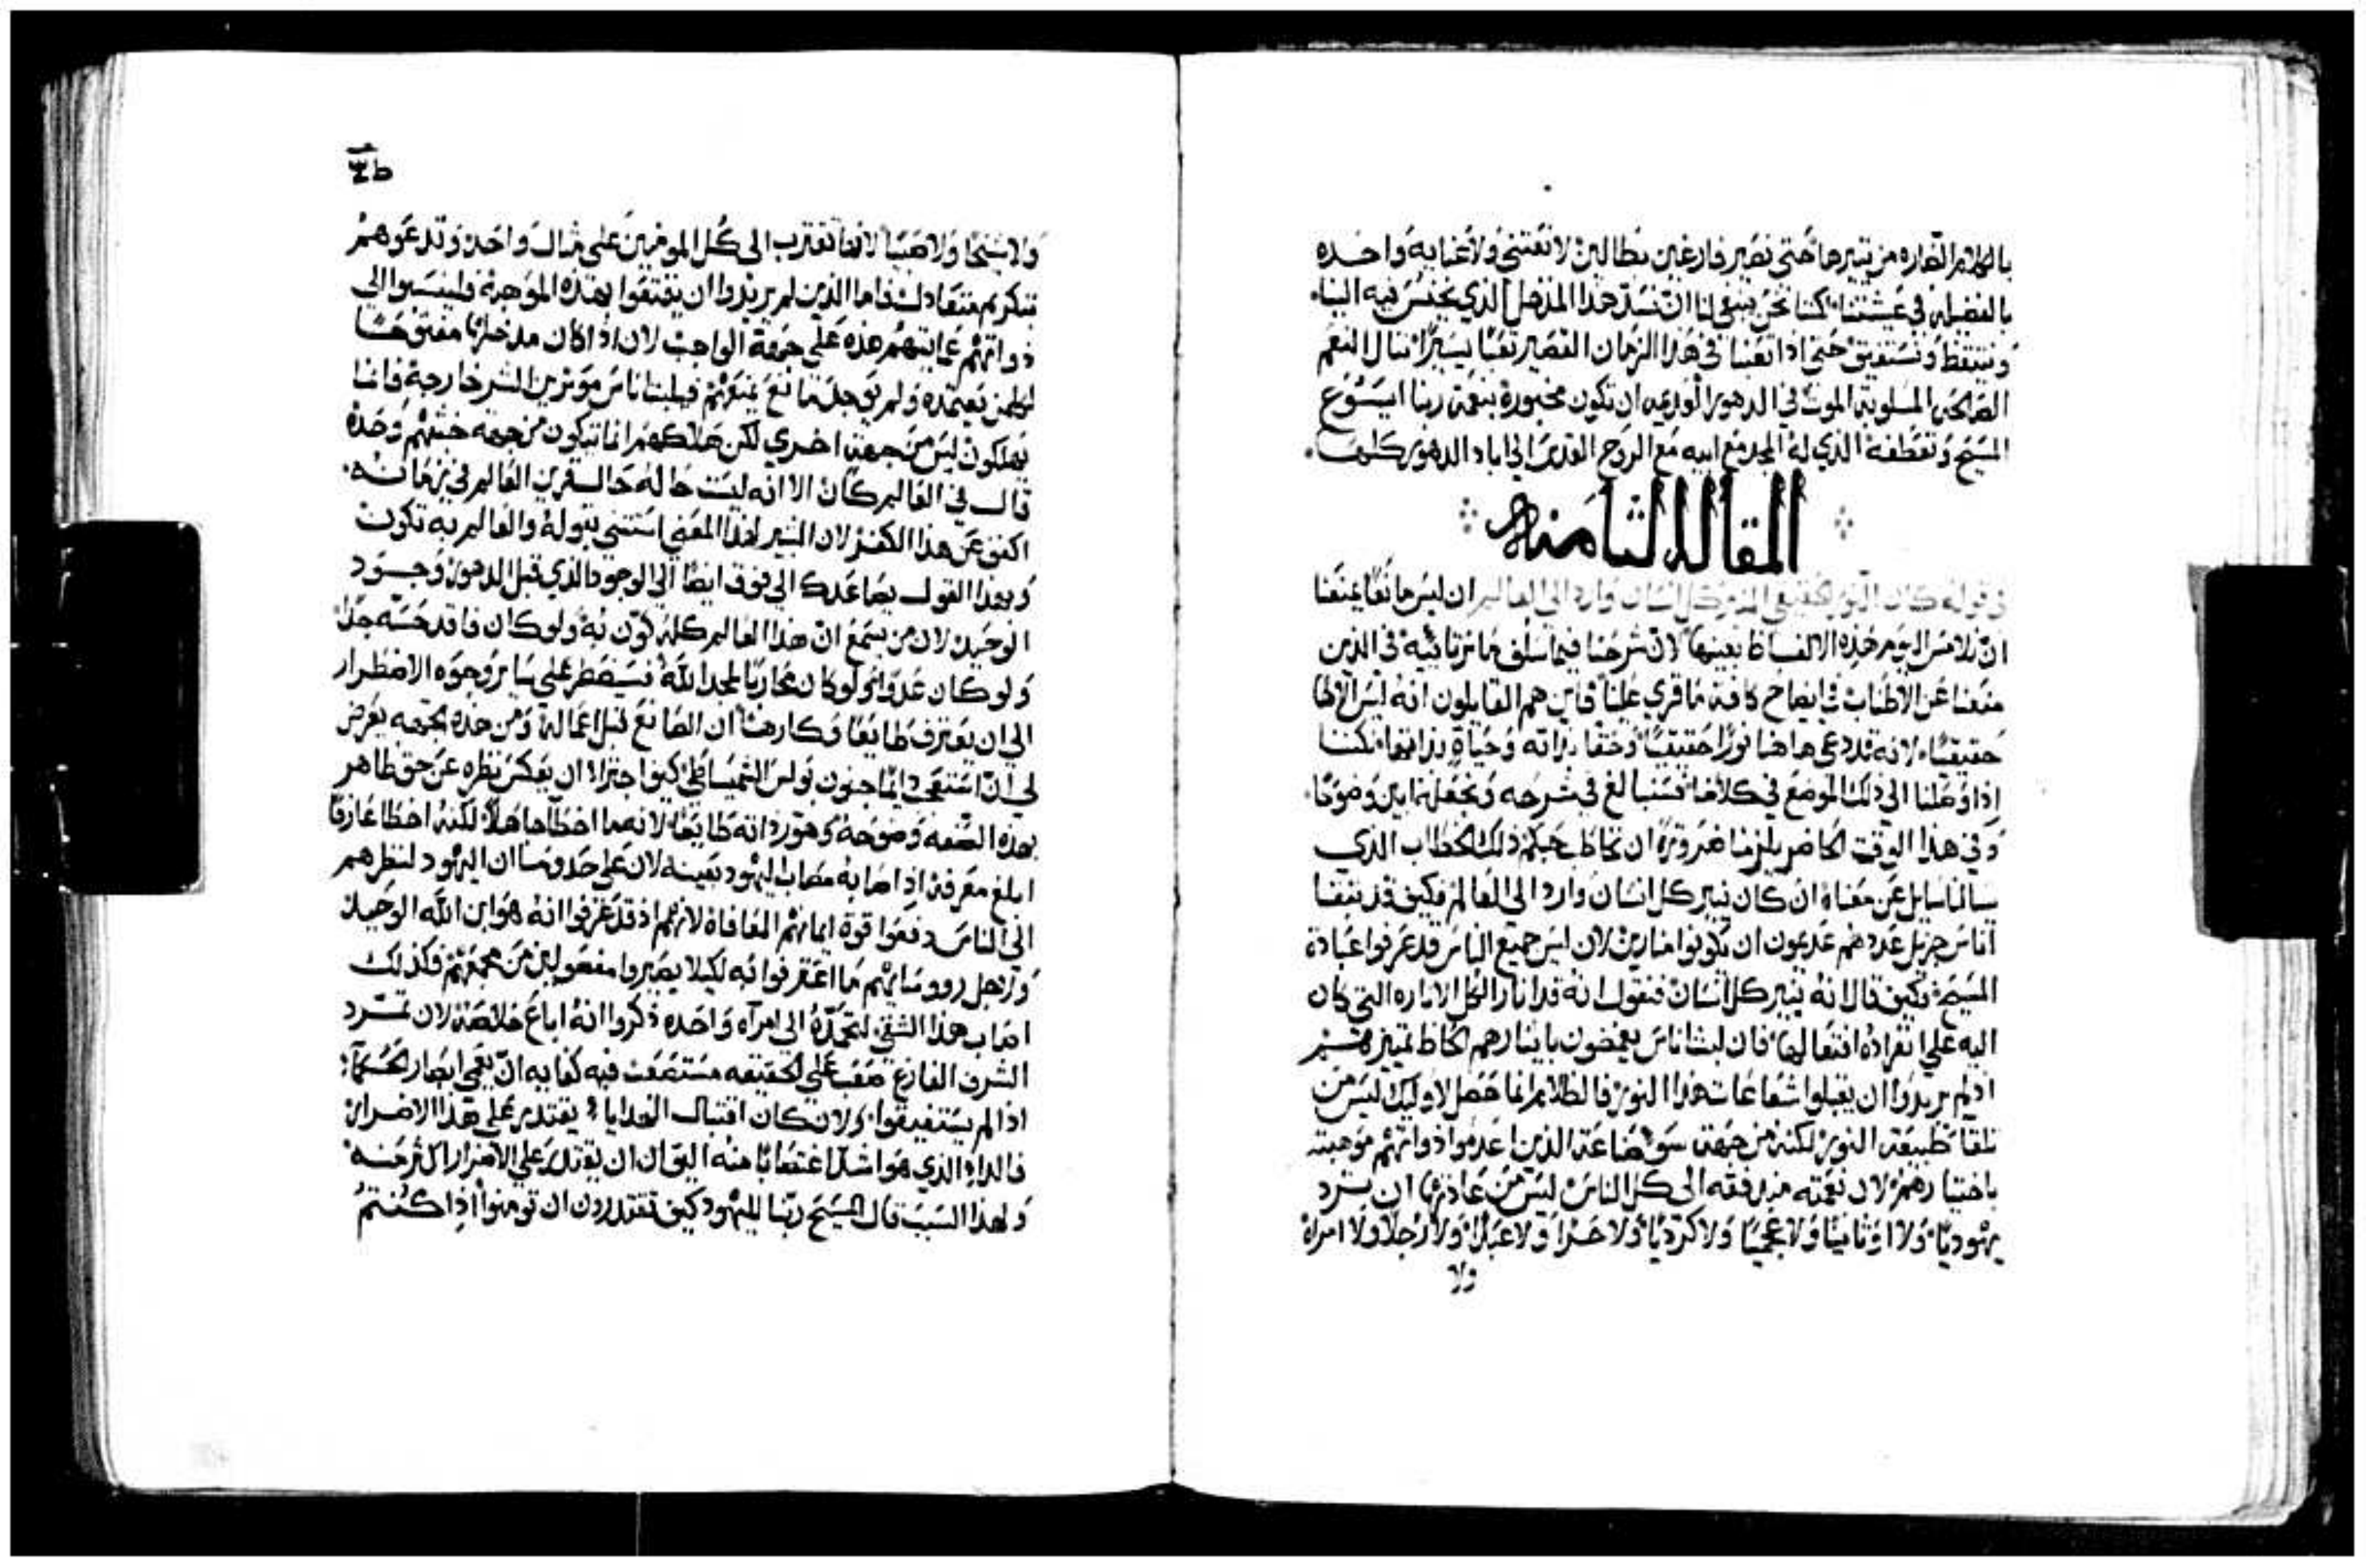 بالكلام الضاره من تنيرها حتى نصير فارغين بطالين لا نعتني ولا عنايه واحده
بالفضيله في عيشتنا لكننا نحن ينبغي لنا ان نسد هذا المدخل الذي يختلس فيه الينا
ونتيقظ ونستفيق حتى اذا تعبنا في هذا الزمان القصير تعبا يسيرا ننال النعم
الصالحه المسلوبة الموت في الدهور الوديه ان تكون محبورة بنعمة ربنا ايسوع
المسيح وتعطفه الذي له المجد مع ابيه مع الروح القدس الى اباد الدهور كلها
المقالة الثامنه
في قوله كان النور الحقيقي المنير كل انسان وارد الى العالم ان ليس مانعا يمنعنا
ان نلامس اليوم هذه الالفاظ بعينها لان شرحنا فيما سلف ما ترتا ييه في الدين
منعنا عن الاطناب في ايضاح كافة ما قري علينا فاين هم القايلون انه ليس الاها
حقيقيا لانه قد دعي هاهنا نورا حقيقيا وحقا بذاته وحياة بذاتها لكننا
اذا وصلنا الى ذلك الموضع في كلامنا فسنبالغ في شرحه ونجعله ابين وضوحا
وفي هذا الوقت الحاضر يلزمنا ضرورة ان نخاطب محبتكم ذلك الخطاب الذي
سالنا سايل عن معناه ان كان نير كل انسان وارد الى العالم فكيف قد بقا
اناس جزيل عددهم عديمون ان يكونوا منارين لان ليس جميع الناس قد عرفوا عبادة
المسيح فكيف قال انه ينير كل انسان فنقول انه قد انار الكل الاناره التي كان
اليه على انفراده افتعالها فان لبث اناس يغمضون باايثارهم الحاظ تمييزهم
اذ لم يريدوا ان يقبلوا شعاعات هذا النور فالظلام انما حصل لاوليك ليس من
تلقا طبيعة النور لكنه من جهة سو صناعة الذين اعدموا ذواتهم موهبته
باختيارهم لان نعمته مندفقه الى كل الناس ليس من عادتها ان ترد
يهوديا ولا اوثانيا ولا عجميا ولا كرديا ولا حرا ولا عبدا ولا رجلا ولا امراة
ولا
ولا شيخا ولا صبيا لانها تقترب الى كل المومنين على مثال واحد وتدعوهم
بتكريم متعادل فاما الذين لم يريدوا ان يتمتعوا بهذه الموهبة فلينسبوا الى
ذواتهم عمايتهم هذه على جهة الواجب لان اذا كان مدخلها مفتوحا
لكل من يعتمده ولم يوجد مانع يمنعهم فيلبث اناس موثرين الشر خارجه فانما
يهلكون ليس من جهة اخرى لكن هلاكهم انما يتكون من جهة خبثهم وحده
قال في العالم كان الا انه ليست حاله حال قرين العالم في زمانه
اكفف عن هذا الكفر لان البشير لهذا المعنى استثنى بقوله والعالم به تكون
وبهذا القول يصاعدك الى فوق ايضا الى الوجود الذي قبل الدهور وجود
الوحيد لان من يسمع ان هذا العالم كله كون به ولو كان فاقد حسه جدا
ولو كان عدوا ولو كان محاربا لمجد الله فسيضطر على ساير وجوه الاضطرار
الى ان يعترف طايعا وكارها ان الصانع قبل اعماله ومن هذه الجهه يعرض
لي ان استعجب دايما جنون بولس الشميساطي كيف اجترا ان يعكس نظره عن حق ظاهر
بهذه الصفه وضوحه وهور ذاته طايعا لانه ما اخطا جاهلا لكنه اخطا عارفا
ابلغ معرفة اذ اصابه مصاب اليهود بعينه لان على حذو ما ان اليهود لنظرهم
الى الناس دفعوا قوة ايمانهم المعافاة لانهم اذ قد عرفوا انه هو ابن الله الوحيد
ومن اجل روسايهم ما اعترفوا به لكيلا يصيروا مفصولين من مجمعهم فكذلك
اصاب هذا الشقي لتعمده الى امراه واحده ذكروا انه اباع خلاصه لان تمرد
الشرف الفارغ صعب على الحقيقه مستصعب فيه كفايه ان يعمي ابصار الحكما
اذا لم يستفيقوا ولان كان اقتبال الهدايا يقتدر على هذا الاضرار
فالداء الذي هو اشد اغتصابا منه اليق ان يقتدر على الاضرار اكثر منه
ولهذا السبب قال المسيح ربنا لليهود كيف تقتدرون ان تومنوا اذا كنتم